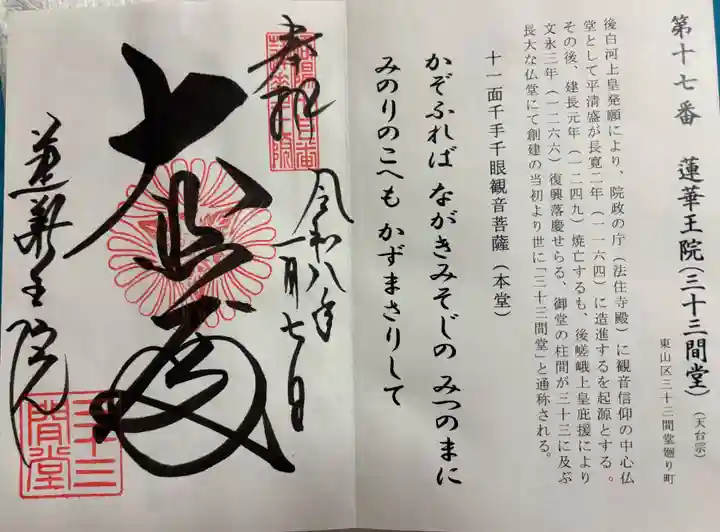 第十七番 蓮華王院(三十三間堂)(天台宗)
東山区三十三間堂廻り町
後白河上皇発願により、院政の庁(法住寺殿)に観音信仰の中心仏
堂として平清盛が長寛二年(一一六四)に造進するを起源とする。
その後、建長元年(一二四九)焼亡するも、後嵯峨上皇庇援により
文永三年(一二六六)復興落慶せらる、御堂の柱間が三十三に及ぶ
長大な仏堂にて創建の当初より世に「三十三間堂」と通称される。
十一面千手千眼観音菩薩(本堂)
かぞふれば ながきみそじの みつのまに
みのりのこへも かずまさりして
奉拝
令和八年
一月七日
大悲殿
蓮華王院
三十三
間堂